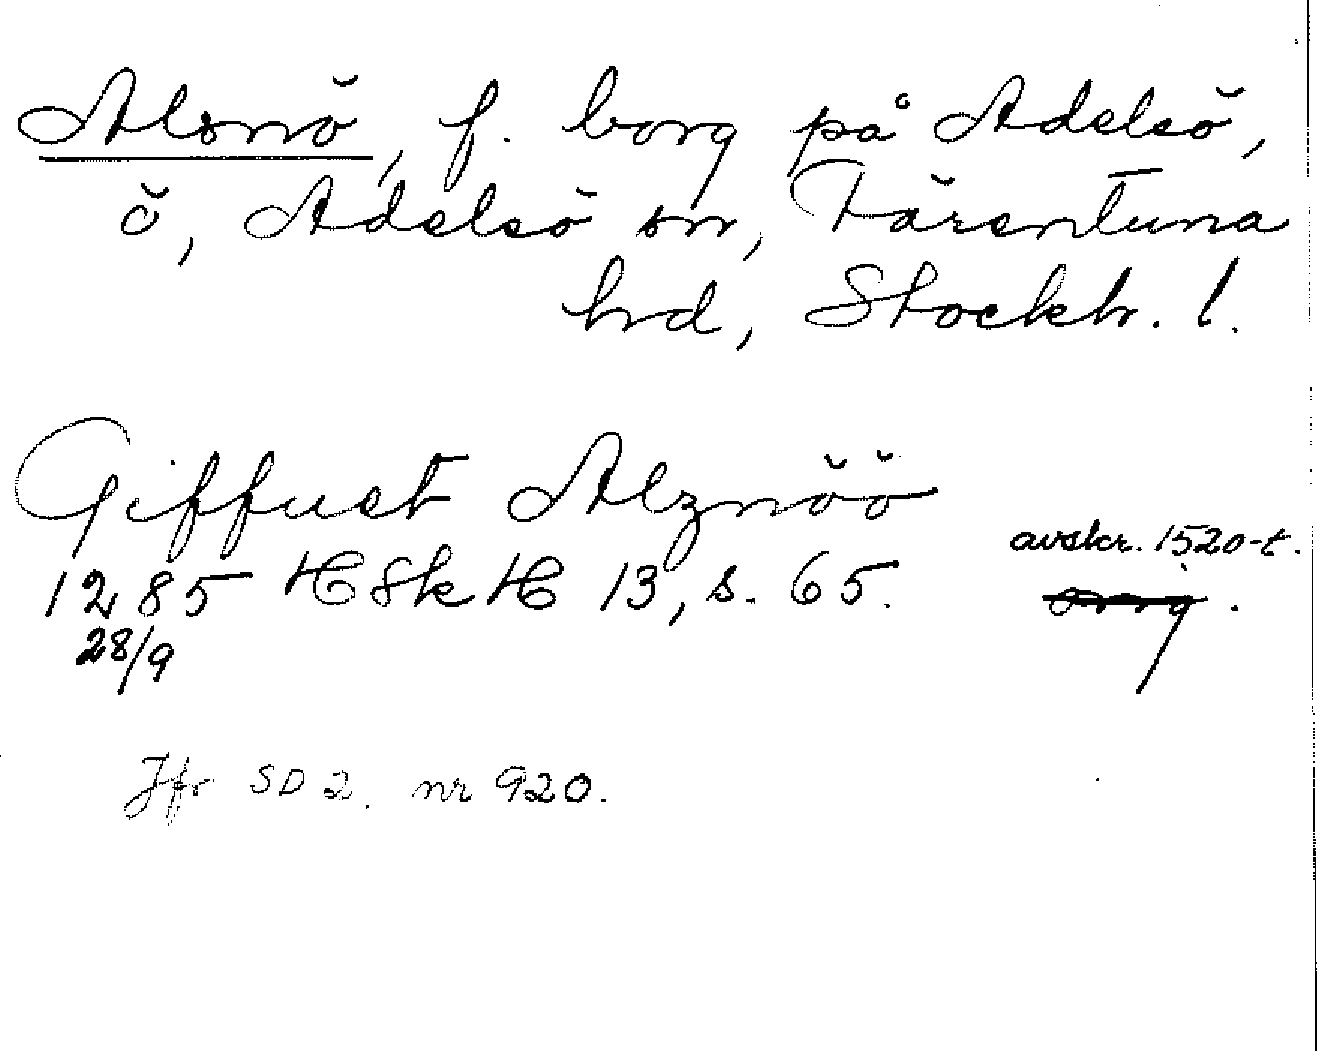 Alsnö, f. borg på Adelsö,
ö, Adelsö sn, Färentuna
hrd, Stockh. l.
Giffuet Alznöö
avskr. 1520-t.
1285 HSkH 13, s. 65. orig.
28/9
Jfr SD 2. nr 920.